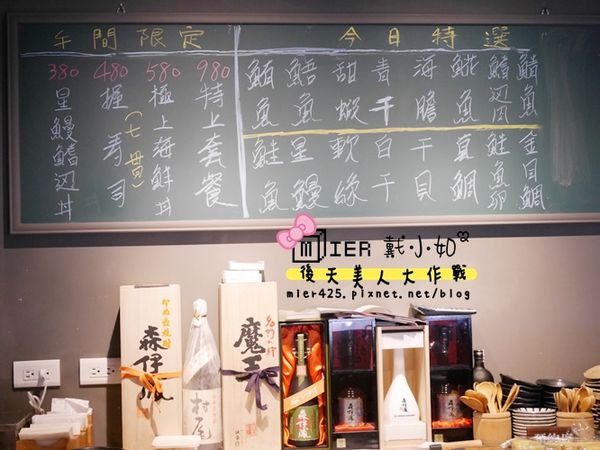 午間限定
980 特上套餐
580 極上海鮮丼
480 握壽司(七貫)
380 星鰻鱔邊丼
今日特選
鯖魚
鱔边肉
鮭魚
海膽
青干
甜蝦
鮭魚
鮪魚
金目鯛
鮭魚卵
真鯛
干貝
白干
軟絲
星鰻
鮭魚
MIER 戴小如
後天美人大作戰
mier425.pixnet.net/blog
森伊蔵
村尾
魔王
森伊蔵